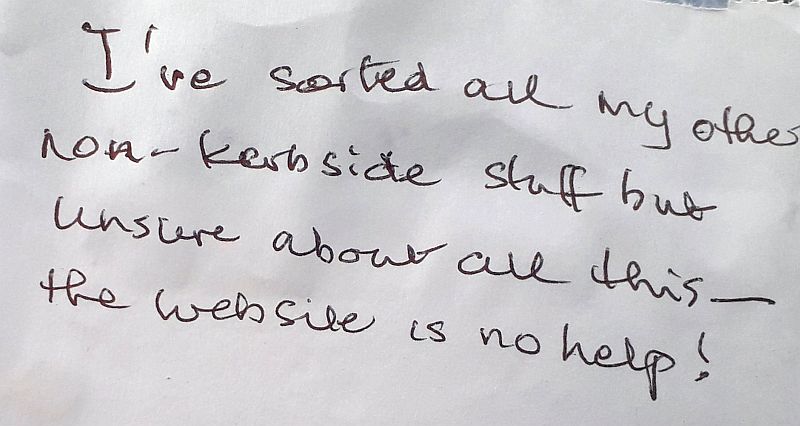 I've sorted all my other
non-kerbside stuff but
unsure about all this—
the website is no help!